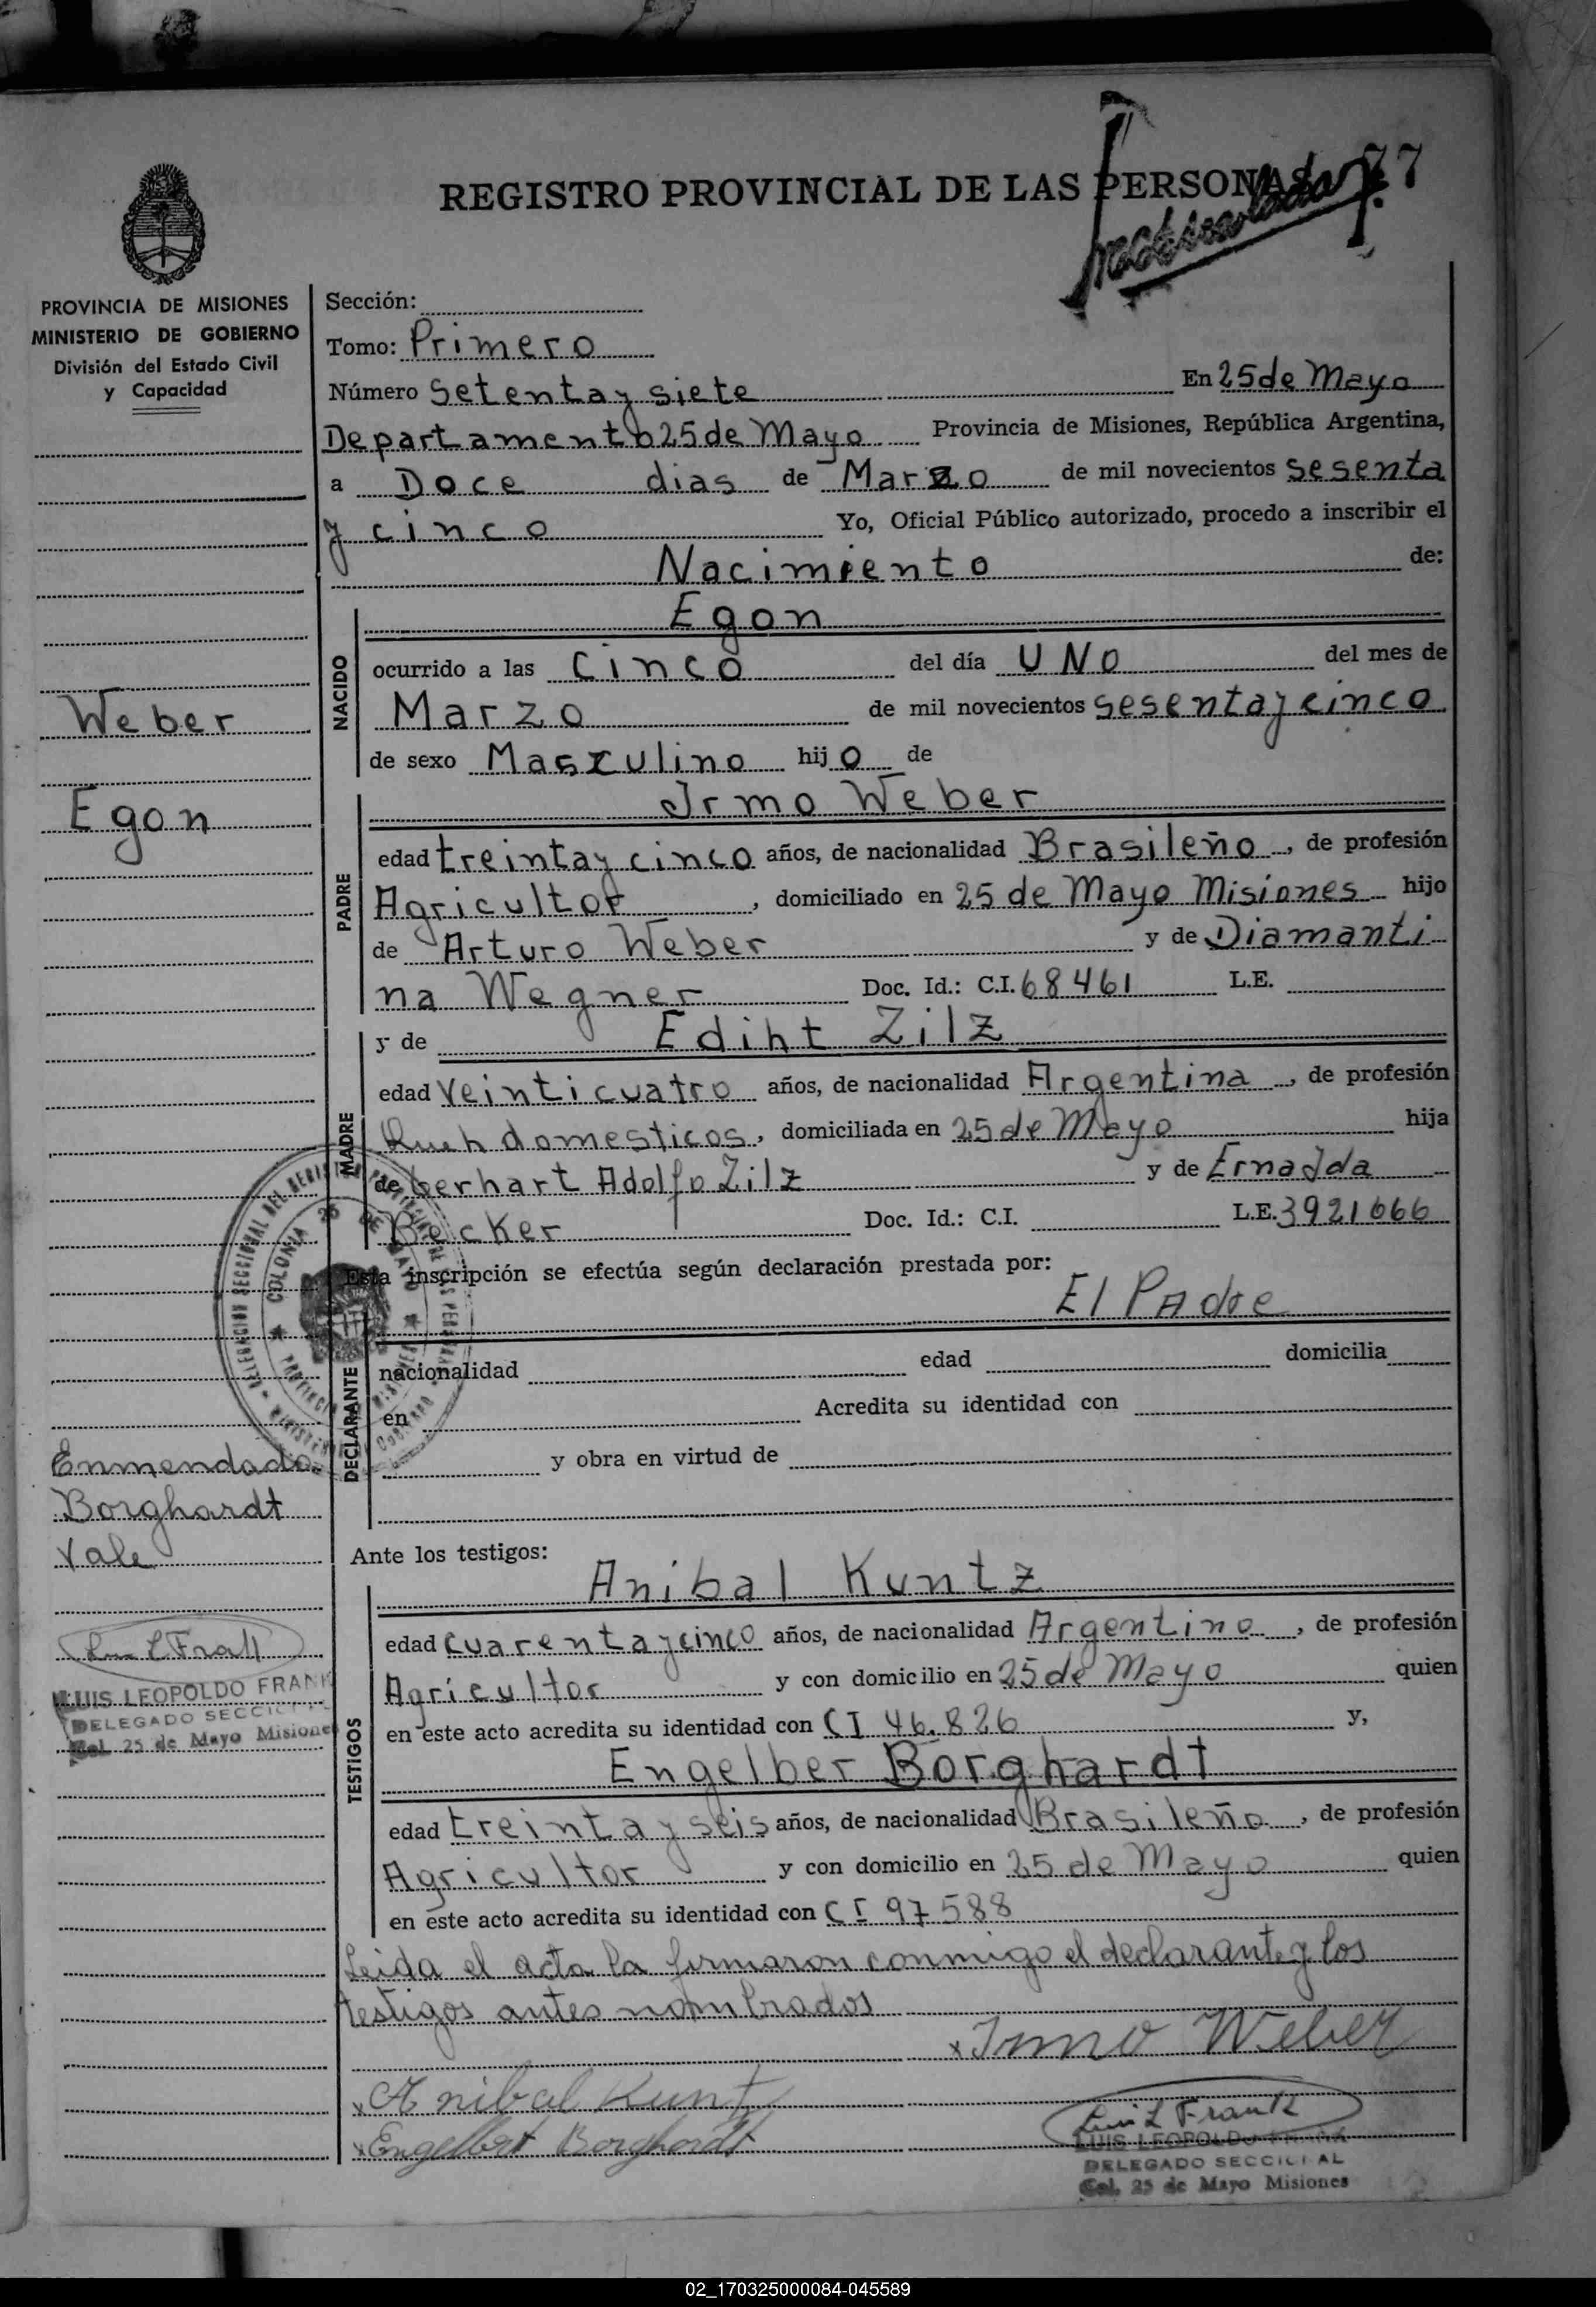 REGISTRO PROVINCIAL DE LAS PERSONAS
77
PROVINCIA DE MISIONES
MINISTERIO DE GOBIERNO
División del Estado Civil
y Capacidad
Sección:
Tomo: Primero
Número Setenta y siete En 25 de Mayo
Departamento 25 de Mayo Provincia de Misiones, República Argentina,
a Doce dias de Marzo de mil novecientos sesenta
y cinco Yo, Oficial Público autorizado, procedo a inscribir el
Nacimiento de:
Egon
NACIDO
ocurrido a las cinco del día UNO del mes de
Marzo de mil novecientos sesenta y cinco
de sexo Masculino hijo de
Weber
Egon
PADRE
Irmo Weber
edad treinta y cinco años, de nacionalidad Brasileño, de profesión
Agricultor, domiciliado en 25 de Mayo Misiones hijo
de Arturo Weber y de Diamanti
na Wegner Doc. Id.: C.I. 68461 L.E.
MADRE
y de Ediht Zilz
edad Veinticuatro años, de nacionalidad Argentina, de profesión
Queh domesticos, domiciliada en 25 de Mayo hija
de Gerhart Adolfo Zilz y de Ernajda
Becker Doc. Id.: C.I. L.E. 3921666
Esta inscripción se efectúa según declaración prestada por:
El Padre
DECLARANTE
nacionalidad edad domicilia
en Acredita su identidad con
y obra en virtud de
COLONIA 25 DE MAYO
Enmendado
Borghardt
Vale
LUIS LEOPOLDO FRANK
DELEGADO SECCIONAL
Col. 25 de Mayo Misiones
Ante los testigos:
TESTIGOS
Anibal Kuntz
edad cuarenta y cinco años, de nacionalidad Argentino, de profesión
Agricultor y con domicilio en 25 de Mayo quien
en este acto acredita su identidad con CI 46.826 y,
Engelber Borghardt
edad treinta y seis años, de nacionalidad Brasileño, de profesión
Agricultor y con domicilio en 25 de Mayo quien
en este acto acredita su identidad con CI 97588
Leida el acta la firmaron conmigo el declarante y los
testigos antes nombrados
x Irmo Weber
x Anibal Kuntz
x Engelbert Borghardt
Luis L Frank
LUIS LEOPOLDO FRANK
DELEGADO SECCIONAL
Col. 25 de Mayo Misiones
02_170325000084-045589